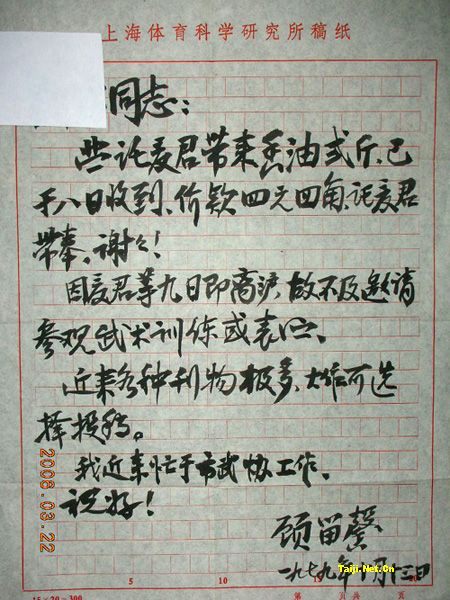 上海体育科学研究所稿纸
同志：
讬麦君带来香油弍斤、已
于八日收到、价款四元四角、讬麦君
带奉、谢々！
因麦君等九日即离沪、故不及邀请
参观武术训练或表演、
近来各种刊物极多、大作可选
择投稿。
我近来忙于市武协工作、
祝好！
顾留馨
一九七九年 月 日
2006.03.22
5 10
15×20=300
Taiji.Net.Cn